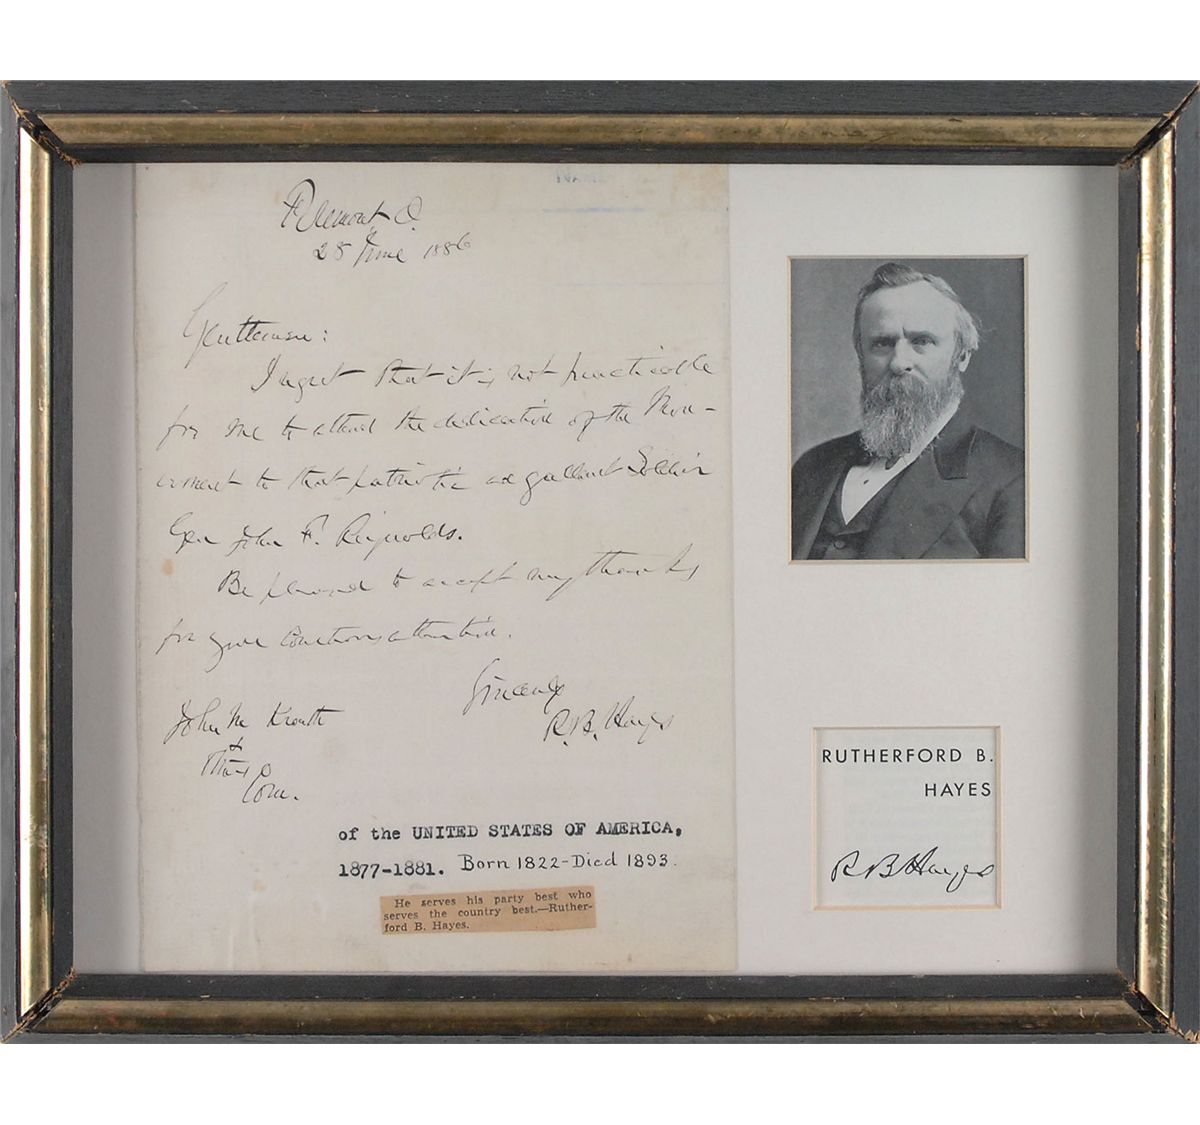 Fremont O.
28 June 1886
Gentlemen:
I regret that it is not practicable
for me to attend the dedication of the Mon-
ument to that patriotic and gallant Soldier
Gen John F. Reynolds.
Be pleased to accept my thanks
for your courteous attention.
Sincerely
R. B. Hayes
John M Krauth
&
Com.
of the UNITED STATES OF AMERICA,
1877-1881. Born 1822-Died 1893.
He serves his party best who
serves the country best.—Ruther-
ford B. Hayes.
RUTHERFORD B.
HAYES
R B Hayes